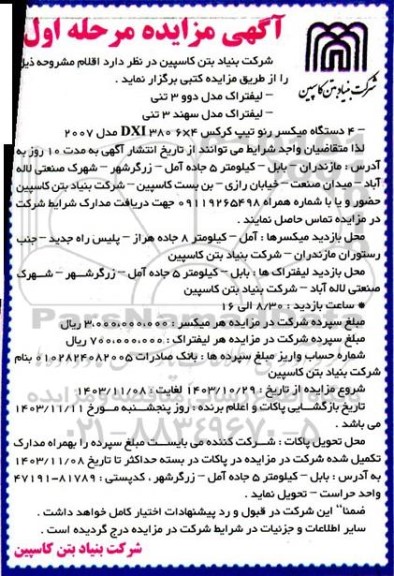 آگهی مزایده مرحله اول
شرکت بنیاد بتن کاسپین
شرکت بنیاد بتن کاسپین در نظر دارد اقلام مشروحه ذیل
را از طریق مزایده کتبی برگزار نماید .
– لیفتراک مدل دوو ۳ تنی
– لیفتراک مدل سهند ۳ تنی
– ۴ دستگاه میکسر رنو تیپ کرکس ۶x۴ DXI ۳۸۰ مدل ۲۰۰۷
لذا متقاضیان واجد شرایط می توانند از تاریخ انتشار آگهی به مدت ۱۰ روز به
آدرس : مازندران – بابل – کیلومتر ۵ جاده آمل – زرگرشهر – شهرک صنعتی لاله
آباد – میدان صنعت – خیابان رازی – بن بست کاسپین – شرکت بنیاد بتن کاسپین
حضور و یا با شماره همراه ۰۹۱۱۹۲۶۵۴۹۸ جهت دریافت مدارک شرایط شرکت
در مزایده تماس حاصل نمایند .
محل بازدید میکسرها : آمل – کیلومتر ۸ جاده هراز – پلیس راه جدید – جنب
رستوران مازندران – شرکت بنیاد بتن کاسپین
محل بازدید لیفتراک ها : بابل – کیلومتر ۵ جاده آمل – زرگرشهر – شهرک
صنعتی لاله آباد – شرکت بنیاد بتن کاسپین
* ساعت بازدید : ۸/۳۰ الی ۱۶
مبلغ سپرده شرکت در مزایده هر میکسر : ۳،۰۰۰،۰۰۰،۰۰۰ ریال
مبلغ سپرده شرکت در مزایده هر لیفتراک : ۷۰۰،۰۰۰،۰۰۰ ریال
شماره حساب واریز مبلغ سپرده ها : بانک صادرات ۰۱۰۲۸۲۴۰۸۲۰۰۵ بنام
شرکت بنیاد بتن کاسپین
شروع مزایده از تاریخ : ۱۴۰۳/۱۰/۲۹ لغایت : ۱۴۰۳/۱۱/۰۸
تاریخ بازگشایی پاکات و اعلام برنده : روز پنجشنبه مورخ ۱۴۰۳/۱۱/۱۱
می باشد .
محل تحویل پاکات : شرکت کننده می بایست مبلغ سپرده را بهمراه مدارک
تکمیل شده شرکت در مزایده در پاکات در بسته حداکثر تا تاریخ ۱۴۰۳/۱۱/۰۸
به آدرس : بابل – کیلومتر ۵ جاده آمل – زرگرشهر ، کدپستی : ۸۱۷۸۹–۴۷۱۹۱
واحد حراست – تحویل نماید .
ضمنا" این شرکت در قبول و رد پیشنهادات اختیار کامل خواهد داشت .
سایر اطلاعات و جزئیات در شرایط شرکت در مزایده درج گردیده است .
شرکت بنیاد بتن کاسپین
۰۲۱-۸۸۳۴۹۶۷۰-۵